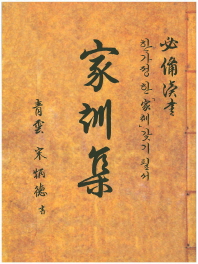 必備
한가정 한「家訓」갖기 필서
家訓集
青雲 宋炳德 書